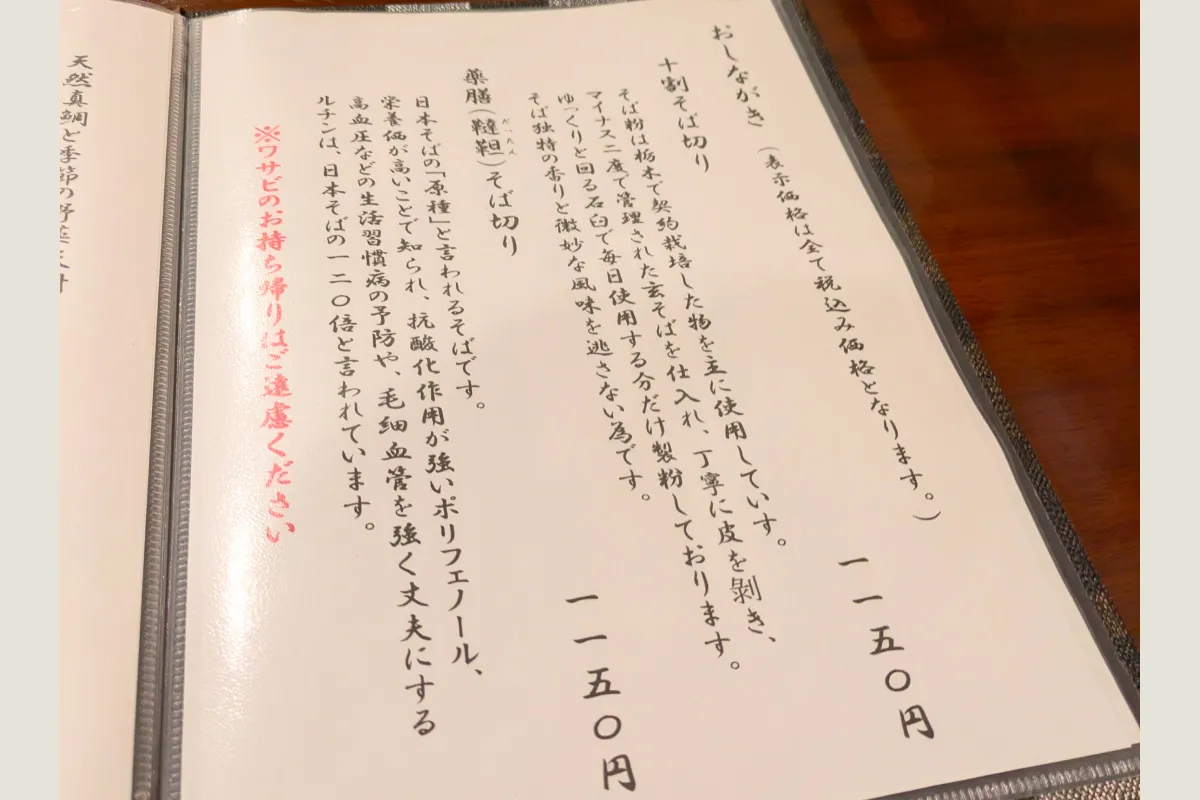 おしながき（表示価格は全て税込み価格となります。）
十割そば切り 一一五〇円
そば粉は栃木で契約栽培した物を主に使用しています。
マイナス二度で管理された玄そばを仕入れ、丁寧に皮を剝き、
ゆっくりと回る石臼で毎日使用する分だけ製粉しております。
そば独特の香りと微妙な風味を逃さない為です。
薬膳（韃靼）そば切り 一一五〇円
だったん
日本そばの「原種」と言われるそばです。
栄養価が高いことで知られ、抗酸化作用が強いポリフェノール、
高血圧などの生活習慣病の予防や、毛細血管を強く丈夫にする
ルチンは、日本そばの一二〇倍と言われています。
※ワサビのお持ち帰りはご遠慮ください
天然真鯛と季節の野菜天丼